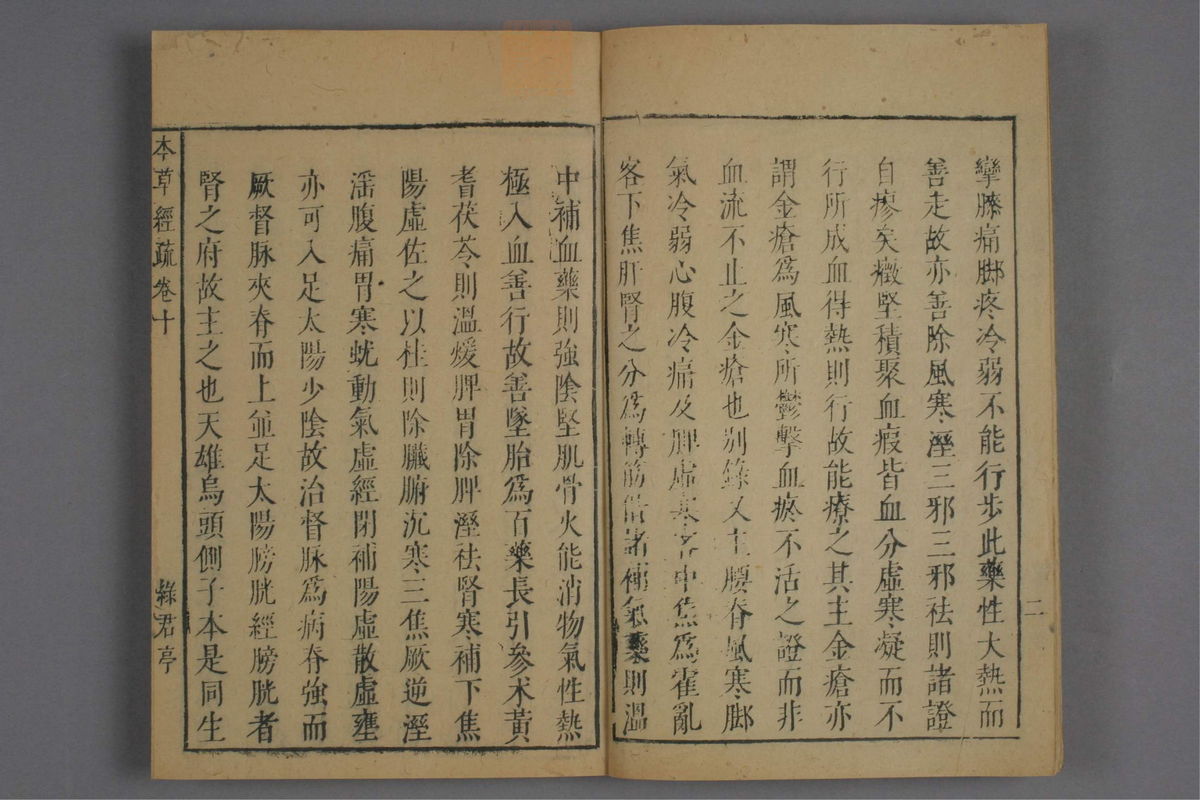 二
攣膝痛腳疼冷弱不能行步此藥性大熱而
善走故亦善除風寒溼三邪三邪祛則諸證
自瘳矣癥堅積聚血瘕皆血分虛寒凝而不
行所成血得熱則行故能療之其主金瘡亦
謂金瘡爲風寒所鬱擊血瘀不活之證而非
血流不止之金瘡也别錄又主腰脊風寒腳
氣冷弱心腹冷痛及脾虛寒客中焦爲霍亂
客下焦肝腎之分爲轉筋借諸補氣藥則溫
中補血藥則強陰堅肌骨火能消物氣性熱
極入血善行故善墜胎爲百藥長引參术黃
耆茯苓則溫煖脾胃除脾溼祛腎寒補下焦
陽虛佐之以桂則除臟腑沉寒三焦厥逆溼
淫腹痛胃寒蚘動氣虛經閉補陽虛散虛壅
亦可入足太陽少陰故治督脉爲病脊強而
厥督脉夾脊而上並足太陽膀胱經膀胱者
腎之府故主之也天雄烏頭側子本是同生
本草經疏 卷十
綠君亭